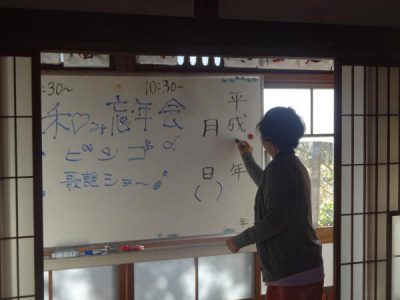 :30~ 10:30~
和♡み忘年会
ビンゴ
歌謡ショー
平成 年
月 日
( )